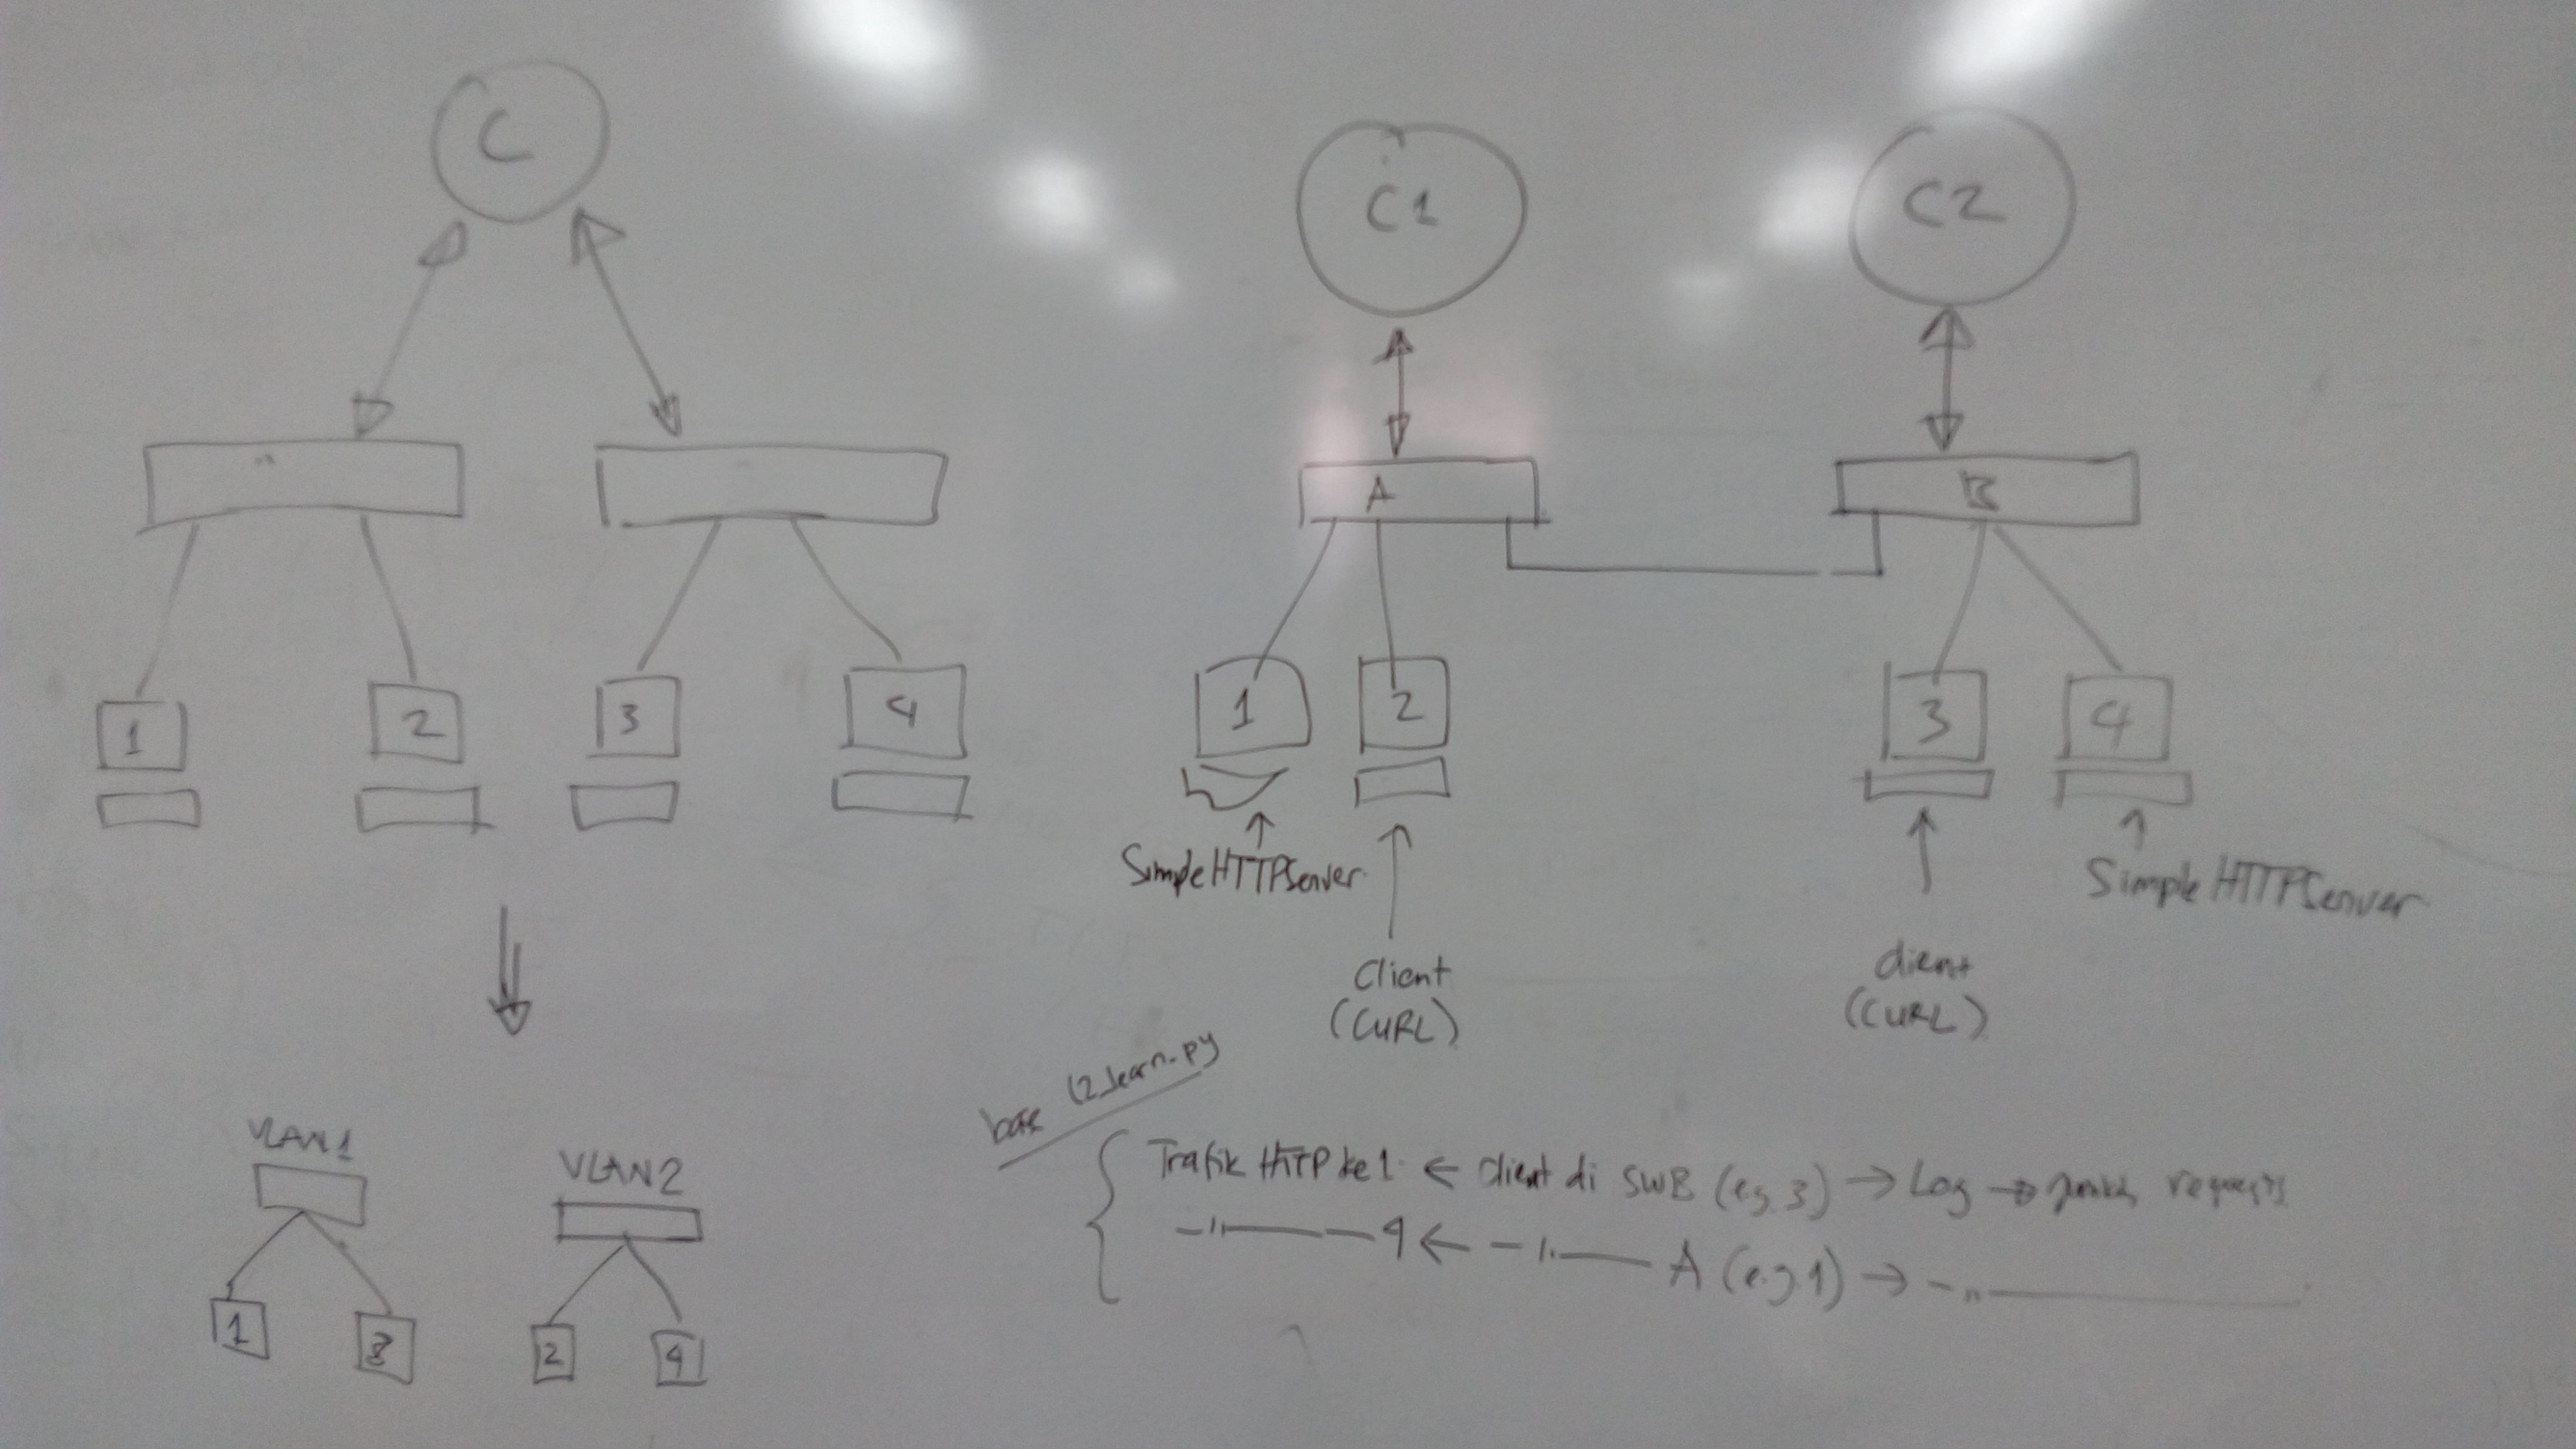 C
1
2
3
4
VLAN1
VLAN2
1
3
2
4
C1
C2
A
B
1
2
3
4
SimpleHTTPServer
Client
(CURL)
client
(CURL)
SimpleHTTPServer
base l2_learn.py
Trafik HTTP ke 1 ← client di SWB (e.g. 3) → Log → requests
—〃— 4 ← —〃— A (e.g 1) → —〃—